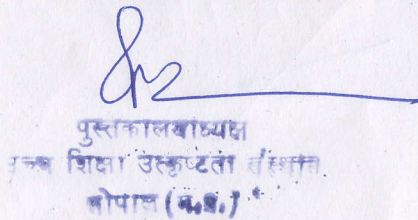 पुस्तकालयाध्यक्ष
उच्च शिक्षा उत्कृष्टता संस्थान
भोपाल (म.प्र.)